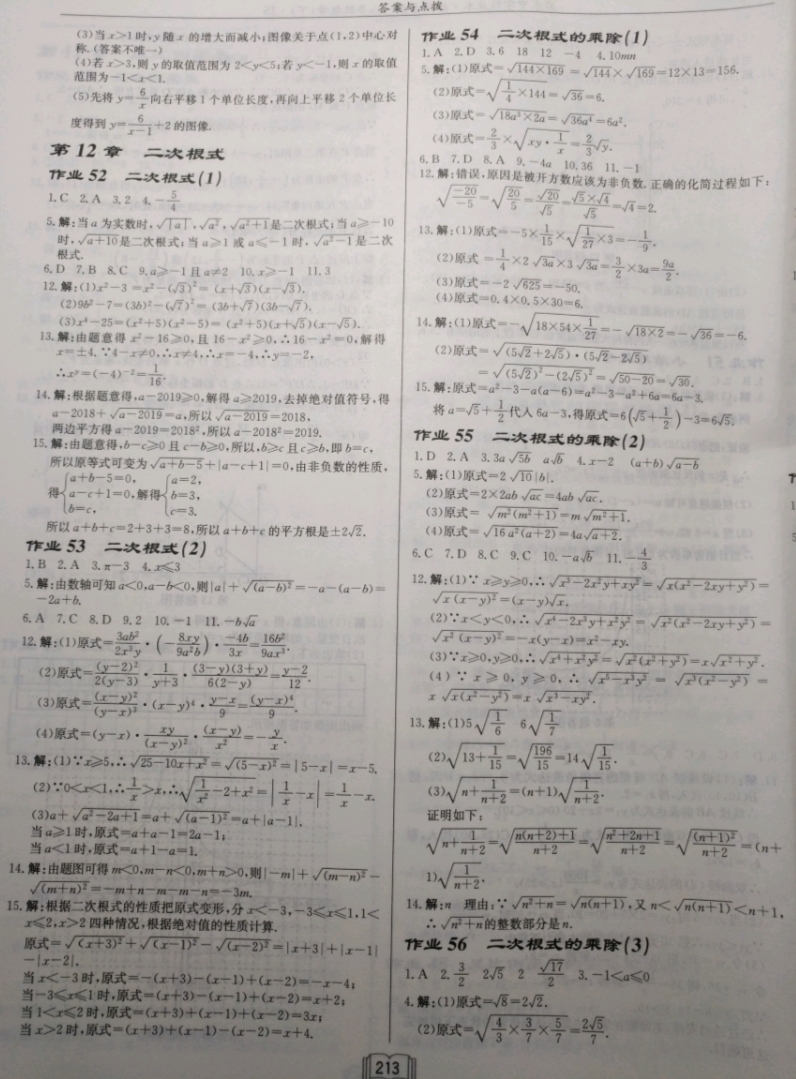 答案与点拨
(3)当x>1时,y随x的增大而减小;图像关于点(1,2)中心对
称.(答案不唯一)
(4)若x>3,则y的取值范围为2<y<5;若y<-1,则x的取值
范围为-1<x<1.
(5)先将y=6/x向右平移1个单位长度,再向上平移2个单位长
度得到y=6/(x-1)+2的图像.
第12章 二次根式
作业52 二次根式(1)
1.C 2.A 3.2 4.-5/4
5.解:当a为实数时,√|a|,√a²,√(a²+1)是二次根式;当a≥-10
时,√(a+10)是二次根式;当a≥1或a≤-1时,√(a²-1)是二次
根式.
6.D 7.B 8.C 9.a≥-1且a≠2 10.x≥-1 11.3
12.解:(1)x²-3=x²-(√3)²=(x+√3)(x-√3).
(2)9b²-7=(3b)²-(√7)²=(3b+√7)(3b-√7).
(3)x⁴-25=(x²+5)(x²-5)=(x²+5)(x+√5)(x-√5).
13.解:由题意得x²-16≥0,且16-x²≥0,∴16-x²=0,解得
x=±4.∵4-x≠0,∴x≠4,∴x=-4,∴y=-2,
∴xʸ=(-4)⁻²=1/16.
14.解:根据题意得,a-2019≥0,解得a≥2019,去掉绝对值符号,得
a-2018+√(a-2019)=a,所以√(a-2019)=2018,
两边平方得a-2019=2018²,所以a-2018²=2019.
15.解:由题意得,b-c≥0且c-b≥0,所以,b≥c且c≥b,即b=c,
所以原等式可变为√(a+b-5)+|a-c+1|=0,由非负数的性质,
得{a+b-5=0, a-c+1=0, b=c, 解得{a=2, b=3, c=3.
所以a+b+c=2+3+3=8,所以a+b+c的平方根是±2√2.
作业53 二次根式(2)
1.B 2.A 3.π-3 4.x≤3
5.解:由数轴可知a<0,a-b<0,则|a|+√(a-b)²=-a-(a-b)=
-2a+b.
6.A 7.C 8.D 9.2 10.-1 11.-b√a
12.解:(1)原式=3ab²/2x³y·(-8xy/9a²b)·-4b/3x=16b²/9ax³.
(2)原式=(y-2)²/2(y-3)·1/(y+3)·(3-y)(3+y)/6(2-y)=(y-2)/12.
(3)原式=(x-y)²/(y-x)³·(x-y)⁴·(y-x)/9=(y-x)⁴/9.
(4)原式=(y-x)·xy/(x-y)²·(x-y)/x²=-y/x.
13.解:(1)∵x≥5,∴√(25-10x+x²)=√(5-x)²=|5-x|=x-5.
(2)∵0<x<1,∴1/x>x,∴√(1/x²-2+x²)=|1/x-x|=1/x-x.
(3)a+√(a²-2a+1)=a+√(a-1)²=a+|a-1|.
当a≥1时,原式=a+a-1=2a-1;
当a<1时,原式=a+1-a=1.
14.解:由题图可得m<0,m-n<0,m+n>0,则|-m|+√(m-n)²-
√(m+n)²=-m+n-m-m-n=-3m.
15.解:根据二次根式的性质把原式变形,分x<-3,-3≤x≤1,1<
x≤2,x>2四种情况,根据绝对值的性质计算.
原式=√(x+3)²+√(x-1)²-√(x-2)²=|x+3|+|x-1|
-|x-2|.
当x<-3时,原式=-(x+3)-(x-1)+(x-2)=-x-4;
当-3≤x≤1时,原式=(x+3)-(x-1)+(x-2)=x+2;
当1<x≤2时,原式=(x+3)+(x-1)+(x-2)=3x;
当x>2时,原式=(x+3)+(x-1)-(x-2)=x+4.
作业54 二次根式的乘除(1)
1.A 2.D 3.6 18 12 -4 4.10mn
5.解:(1)原式=√(144×169)=√144×√169=12×13=156.
(2)原式=√(1/4×144)=√36=6.
(3)原式=√(18a³×2a)=√(36a⁴)=6a².
(4)原式=2/3×√(xy·1/x)=2/3√y.
6.B 7.D 8.A 9.-4a 10.36 11.-1
12.解:错误,原因是被开方数应该为非负数.正确的化简过程如下:
√(-20/-5)=√(20/5)=√20/√5=√(5×4)/√5=√4=2.
13.解:(1)原式=-5×1/15×√(1/27×3)=-1/9.
(2)原式=1/4×2√3a×3√3a=3/2×3a=9a/2.
(3)原式=-2√625=-50.
(4)原式=0.4×0.5×30=6.
14.解:(1)原式=-√(18×54×1/27)=-√(18×2)=-√36=-6.
(2)原式=√((5√2+2√5)·(5√2-2√5))
=√((5√2)²-(2√5)²)=√(50-20)=√30.
15.解:原式=a²-3-a(a-6)=a²-3-a²+6a=6a-3.
将a=√5+1/2代入6a-3,得原式=6(√5+1/2)-3=6√5.
作业55 二次根式的乘除(2)
1.D 2.A 3.3a√5b a√b 4.x-2 (a+b)√(a-b)
5.解:(1)原式=2√10|b|.
(2)原式=2×2ab√ac=4ab√ac.
(3)原式=√(m²(m²+1))=m√(m²+1).
(4)原式=√(16a²(a+2))=4a√(a+2).
6.C 7.D 8.C 9.C 10.-a√b 11.-4/3
12.解:(1)∵x≥y≥0,∴√(x³-2x²y+xy²)=√(x(x²-2xy+y²))=
√(x(x-y)²)=(x-y)√x.
(2)∵x<y<0,∴√(x⁴-2x³y+x²y²)=√(x²(x²-2xy+y²))=
√(x²(x-y)²)=-x(y-x)=x²-xy.
(3)∵x≥0,y≥0,∴√(x⁴+x²y²)=√(x²(x²+y²))=x√(x²+y²).
(4)∵x≥0,y≥0,∴√(x⁵-x³y²)=√(x³(x²-y²))=
x√(x(x²-y²))=x√(x³-xy²).
13.解:(1)5√(1/6) 6√(1/7)
(2)√(13+1/15)=√(196/15)=14√(1/15).
(3)√(n+1/(n+2))=(n+1)√(1/(n+2)).
证明如下:
√(n+1/(n+2))=√((n(n+2)+1)/(n+2))=√((n²+2n+1)/(n+2))=√((n+1)²/(n+2))=(n+
1)√(1/(n+2)).
14.解:n 理由:∵√(n²+n)=√(n(n+1)),又n<√(n(n+1))<n+1,
∴√(n²+n)的整数部分是n.
作业56 二次根式的乘除(3)
1.A 2.3/2 2√5 2 √17/2 3.-1<a≤0
4.解:(1)原式=√8=2√2.
(2)原式=√(4/3×3/7×5/7)=2√5/7.
213